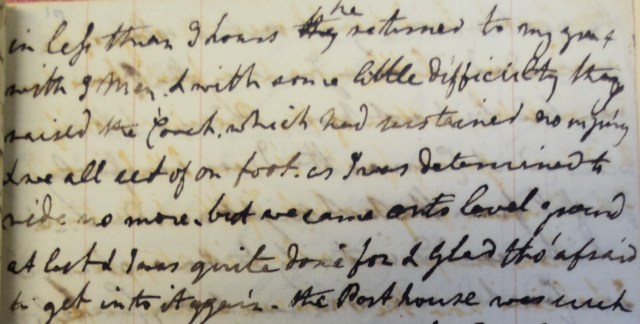 in less than 3 hours he returned to my great
with 9 Men & with some little difficulty they
raised the Coach, which had sustained no injury
& we all set of on foot. as I was determined to
ride no more. but we came onto level ground
at last & I was quite done for & Glad tho' afraid
to get into it again. the Post house was such